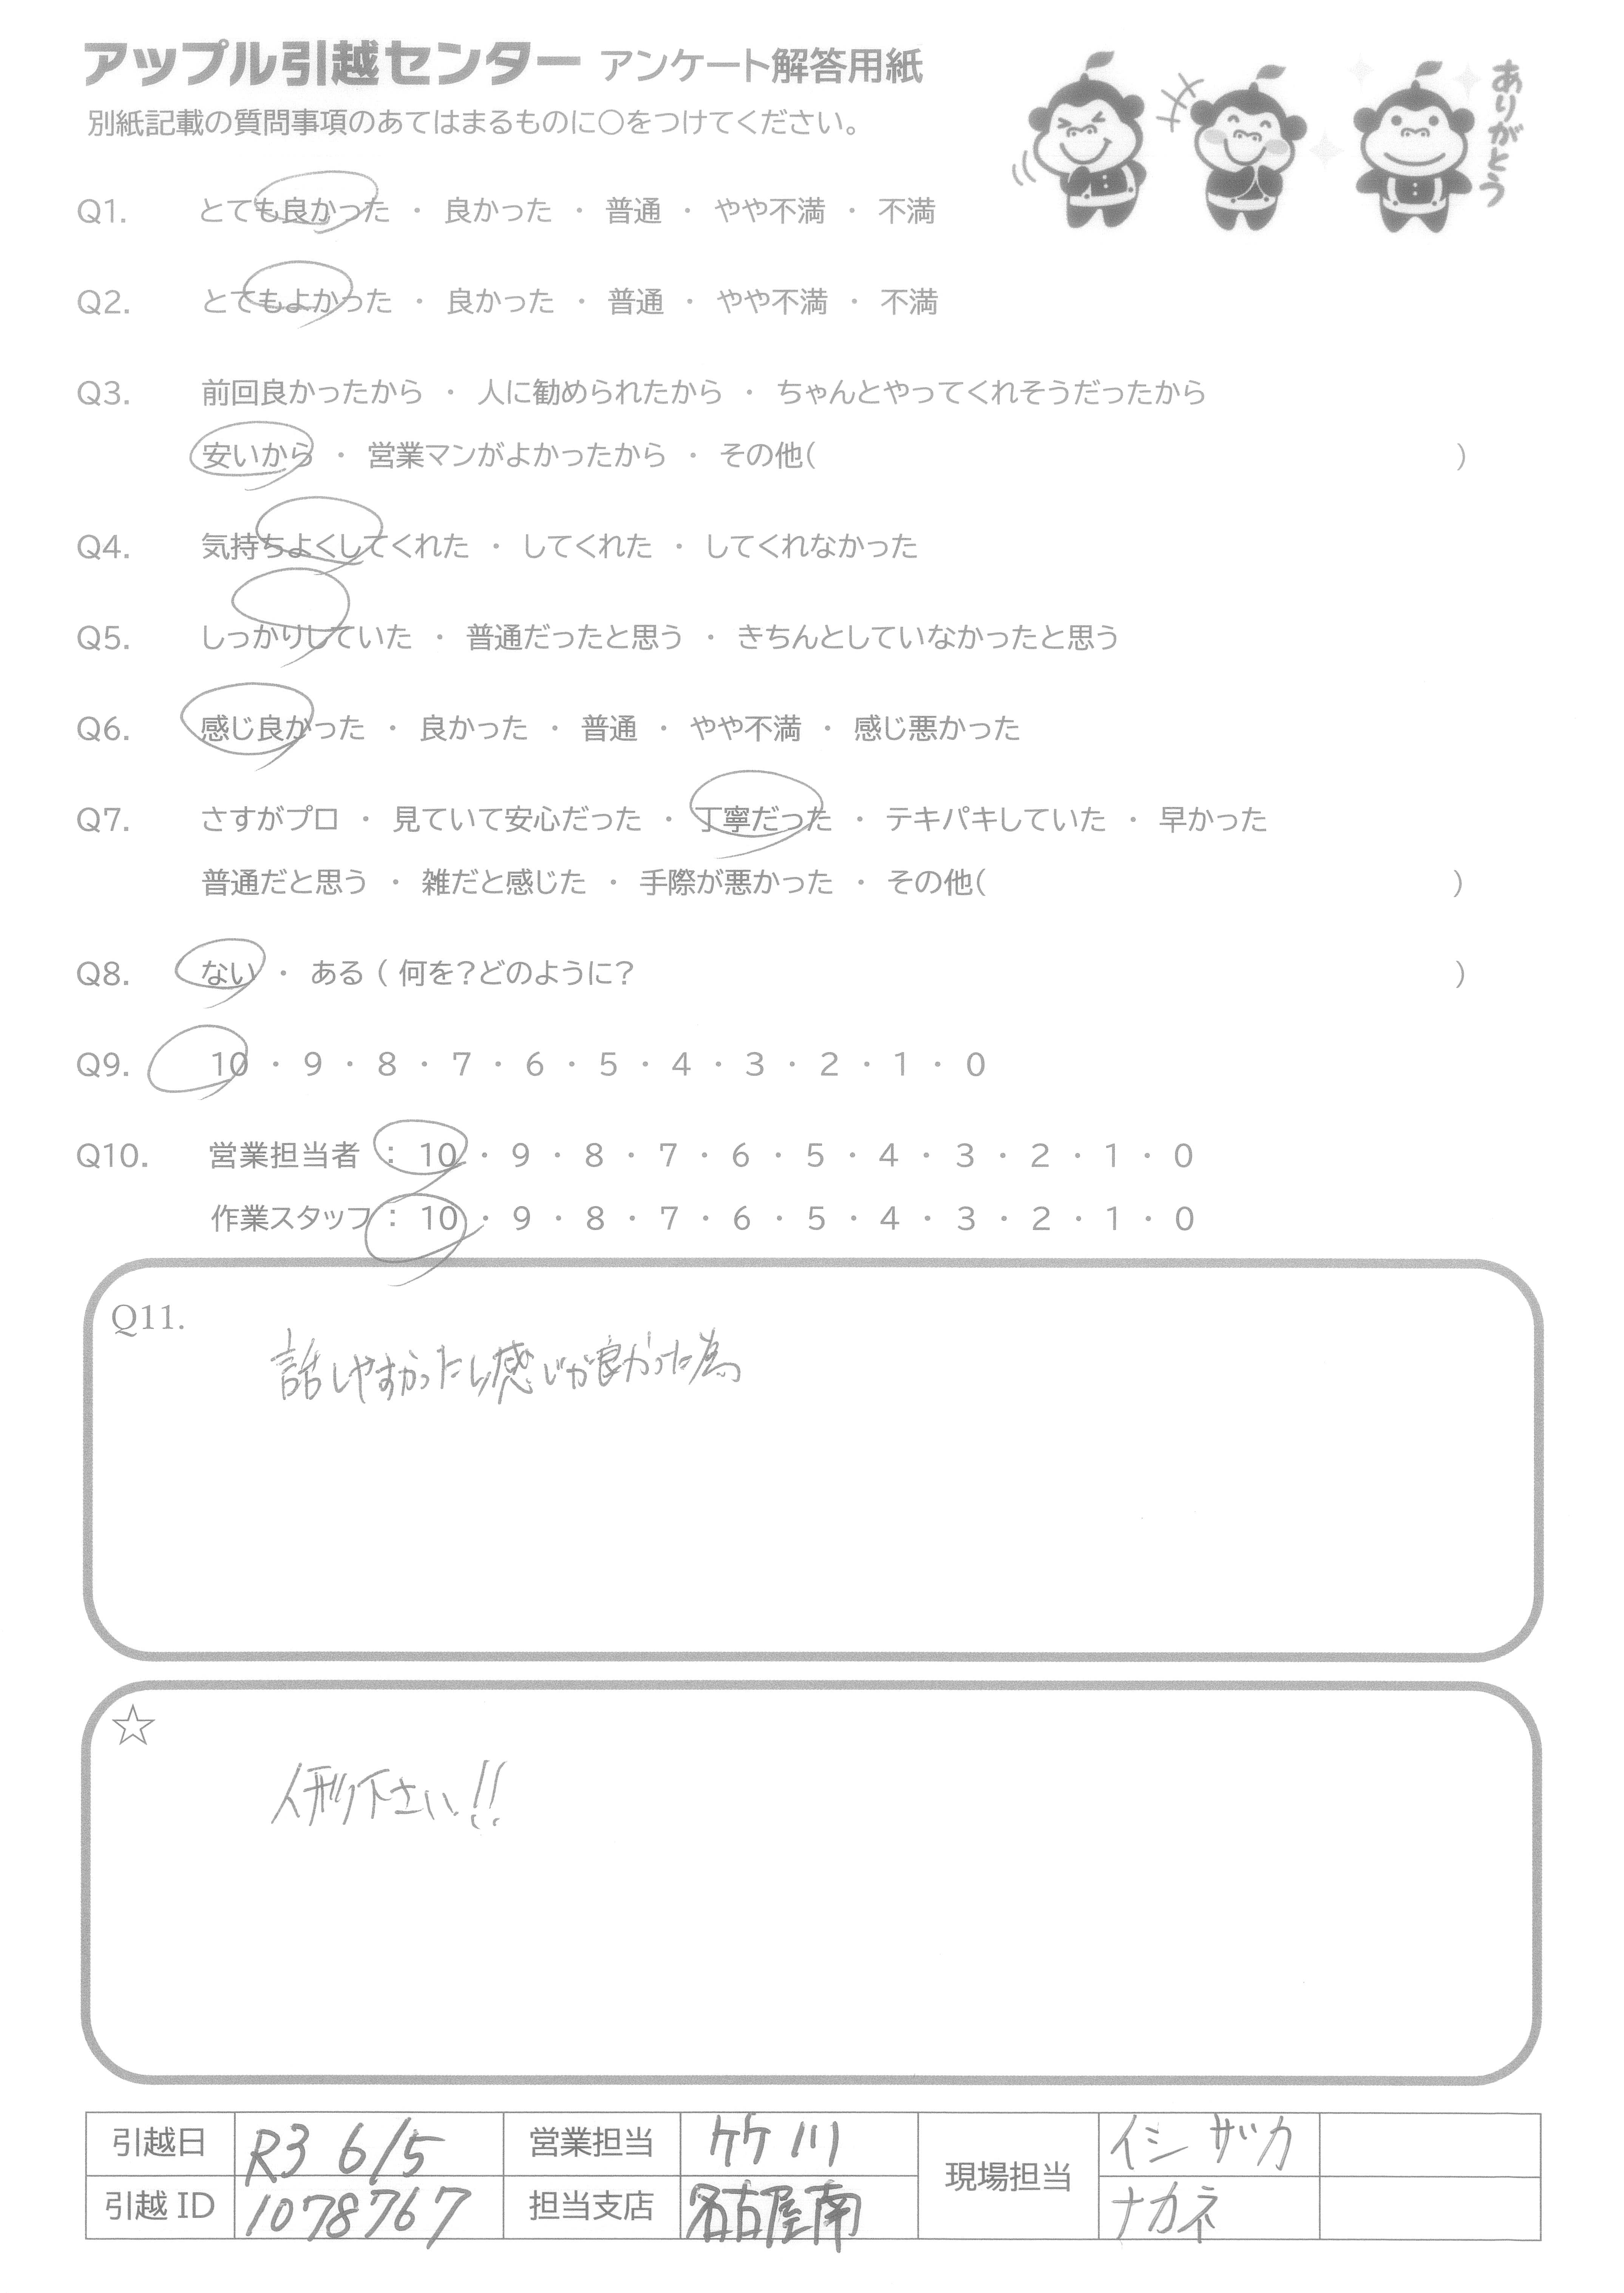 アップル引越センター アンケート解答用紙
ありがとう
別紙記載の質問事項のあてはまるものに○をつけてください。
Q1. とても良かった ・ 良かった ・ 普通 ・ やや不満 ・ 不満
Q2. とてもよかった ・ 良かった ・ 普通 ・ やや不満 ・ 不満
Q3. 前回良かったから ・ 人に勧められたから ・ ちゃんとやってくれそうだったから
安いから ・ 営業マンがよかったから ・ その他( )
Q4. 気持ちよくしてくれた ・ してくれた ・ してくれなかった
Q5. しっかりしていた ・ 普通だったと思う ・ きちんとしていなかったと思う
Q6. 感じ良かった ・ 良かった ・ 普通 ・ やや不満 ・ 感じ悪かった
Q7. さすがプロ ・ 見ていて安心だった ・ 丁寧だった ・ テキパキしていた ・ 早かった
普通だと思う ・ 雑だと感じた ・ 手際が悪かった ・ その他( )
Q8. ない ・ ある ( 何を?どのように? )
Q9. 10 ・ 9 ・ 8 ・ 7 ・ 6 ・ 5 ・ 4 ・ 3 ・ 2 ・ 1 ・ 0
Q10. 営業担当者 : 10 ・ 9 ・ 8 ・ 7 ・ 6 ・ 5 ・ 4 ・ 3 ・ 2 ・ 1 ・ 0
作業スタッフ : 10 ・ 9 ・ 8 ・ 7 ・ 6 ・ 5 ・ 4 ・ 3 ・ 2 ・ 1 ・ 0
Q11.
話しやすかったし感じが良かった為
☆
人形下さい!!
引越日 R3 6/5 営業担当 竹川 現場担当 イシザカ
引越ID 1078767 担当支店 名古屋南 ナカネ